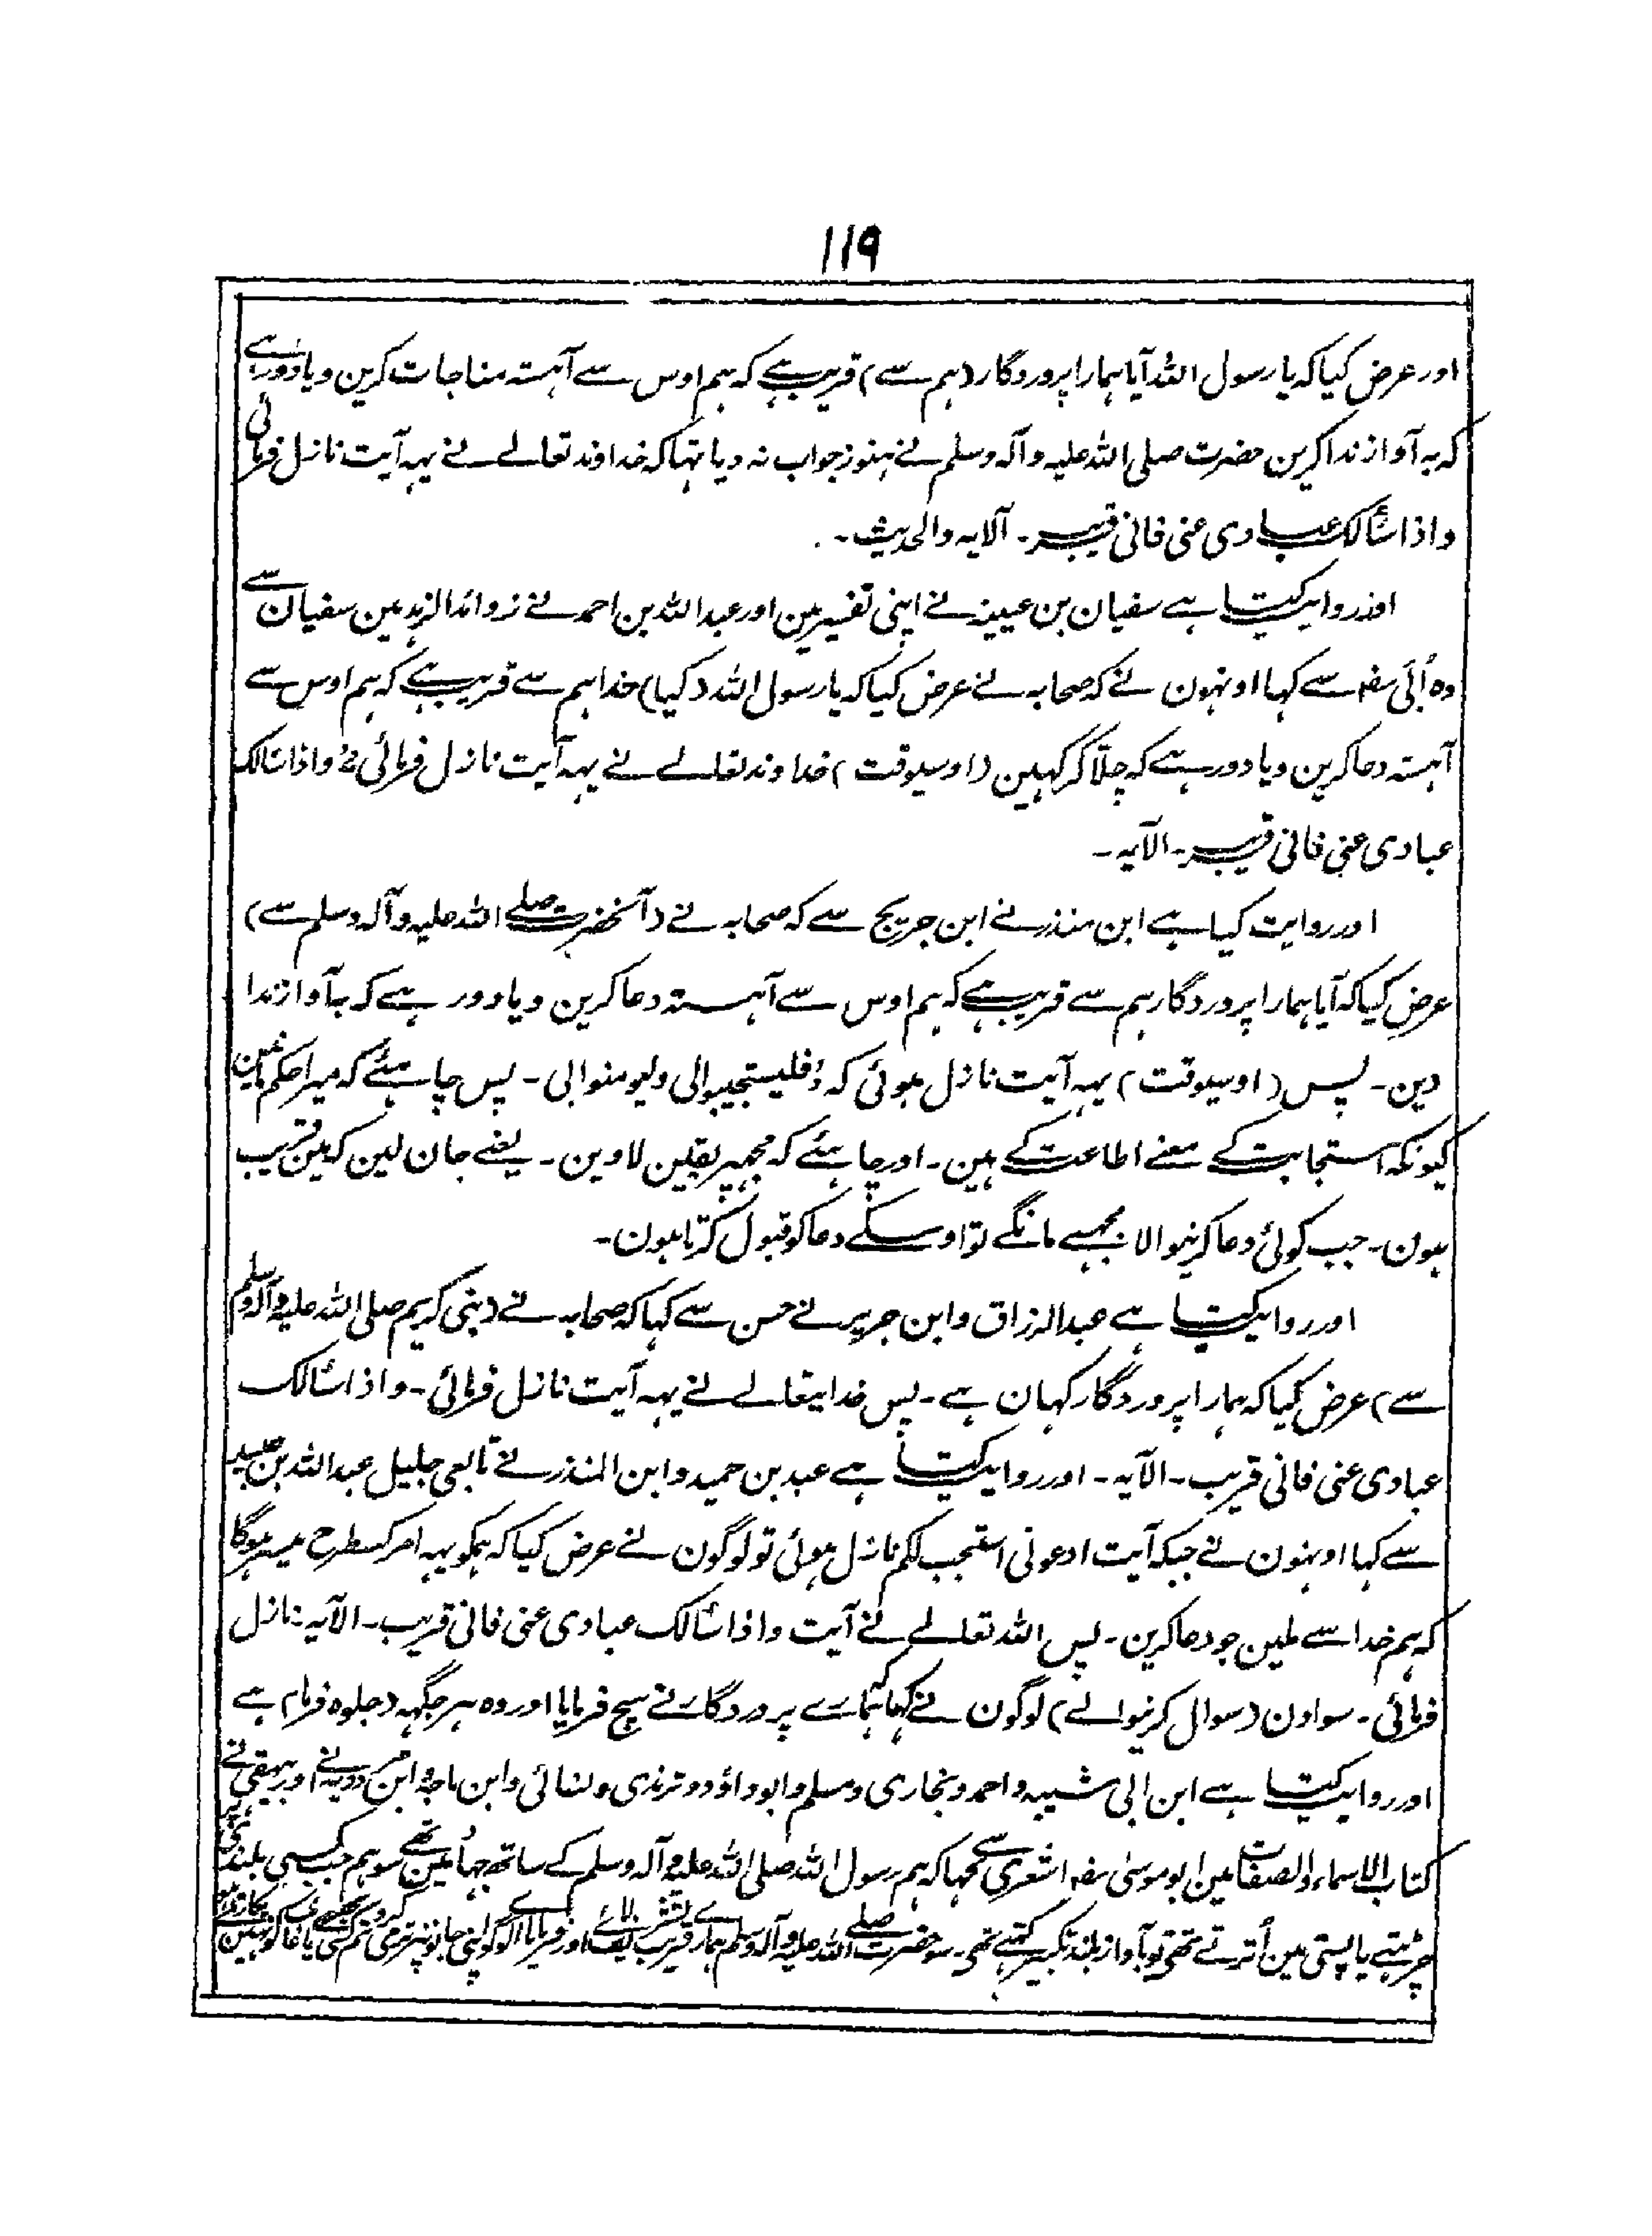 ۱۱۹
اور عرض کیا کہ یا رسول اللہ آیا ہمارا پروردگار (ہم سے) قریب ہے کہ ہم اوس سے آہستہ مناجات کرین ویا دور ہے
کہ بہ آواز ندا کرین حضرت صلی اللہ علیہ وآلہ وسلم نے ہنوز جواب نہ دیا تہا کہ خداوند تعالے نے یہہ آیت نازل فرمائی
واذا سألک عبادی عنی فانی قریب۔ الآیہ والحدیث۔
اور روایت کیا ہے سفیان بن عیینہ نے اپنی تفسیر مین اور عبداللہ بن احمد نے زوائد الزہد مین سفیان سے
وہ اُبَیّ سفہ سے کہا اونہون نے کہ صحابہ نے عرض کیا کہ یا رسول اللہ (کیا) خدا ہم سے قریب ہے کہ ہم اوس سے
آہستہ دعا کرین ویا دور ہے کہ چلّا کر کہین (اوسیوقت) خداوند تعالے نے یہہ آیت نازل فرمائی واذا سألک
عبادی عنی فانی قریب۔ الآیہ۔
اور روایت کیا ہے ابن منذر نے ابن جریج سے کہ صحابہ نے (آنحضرت صلے اللہ علیہ وآلہ وسلم سے)
عرض کیا کہ آیا ہمارا پروردگار ہم سے قریب ہے کہ ہم اوس سے آہستہ دعا کرین ویا دور ہے کہ بآواز ندا
دین۔ پس (اوسیوقت) یہہ آیت نازل ہوئی کہ فلیستجیبوا لی ولیومنوا بی۔ پس چاہئے کہ میرا حکم مانین
کیونکہ استجابت کے معنے اطاعت کے ہین۔ اور چاہئے کہ مجہپر یقین لاوین۔ یعنے جان لین کہ مین قریب
ہون۔ جب کوئی دعا کرنیوالا مجہسے مانگے تو اوسکے دعا کو قبول کرتا ہون۔
اور روایت کیا ہے عبدالرزاق وابن جریر نے حسن سے کہا کہ صحابہ نے (نبی کریم صلی اللہ علیہ وآلہ وسلم
سے) عرض کیا کہ ہمارا پروردگار کہان ہے۔ پس خدایتعالے نے یہہ آیت نازل فرمائی۔ واذا سألک
عبادی عنی فانی قریب۔ الآیہ۔ اور روایت کیا ہے عبد بن حمید وابن المنذر نے تابعی جلیل عبداللہ بن عبید
سے کہا اونہون نے جبکہ آیت ادعونی استجب لکم نازل ہوئی تو لوگون نے عرض کیا کہ ہمکو یہہ امر کسطرح میسر ہوگا
کہ ہم خدا سے ملین جو دعا کرین۔ پس اللہ تعالے نے آیت واذا سألک عبادی عنی فانی قریب۔ الآیہ نازل
فرمائی۔ سو اون (سوال کرنیوالے) لوگون نے کہا کہ ہمارے پروردگار نے سچ فرمایا اور وہ ہر جگہہ (جلوہ فرما) ہے
اور روایت کیا ہے ابن ابی شیبہ واحمد وبخاری ومسلم وابو داؤد وترمذی ونسائی وابن ماجہ وابن مردویہ نے اور بیہقی نے
کتاب الاسماء والصفات مین ابو موسی سفہ اشعری سے کہا کہ ہم رسول اللہ صلی اللہ علیہ وآلہ وسلم کے ساتھ جہاد مین تھے سو ہم جب کسی بلندی پر
چڑہتے یا پستی مین اُترتے تھے تو بآواز بلند تکبیر کہتے تھے۔ سو حضرت صلے اللہ علیہ وآلہ وسلم ہمارے قریب تشریف لائے اور فرمایا اے لوگو اپنی جانونپر نرمی کرو تم کسی بہرے یا غائب کو نہین پکارتے